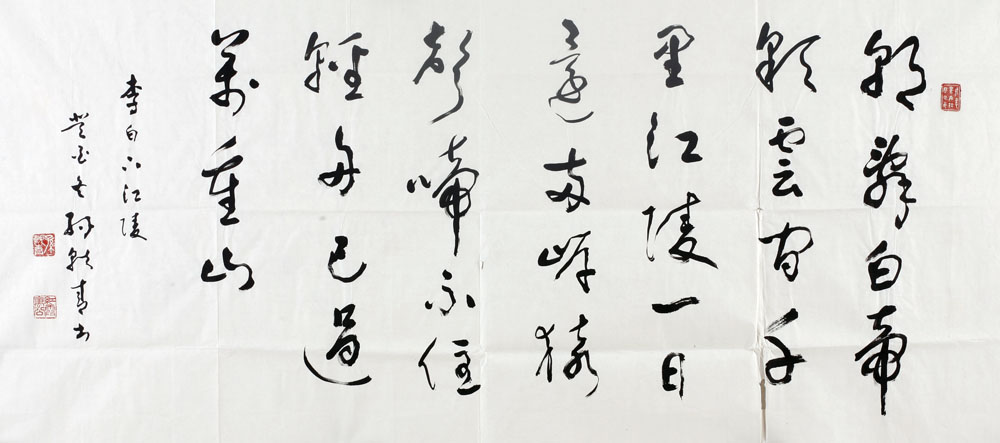 朝辭白帝
彩雲間千
里江陵一日
還兩岸猿
聲啼不住
輕舟已過
萬重山
李白下江陵
冬 青书